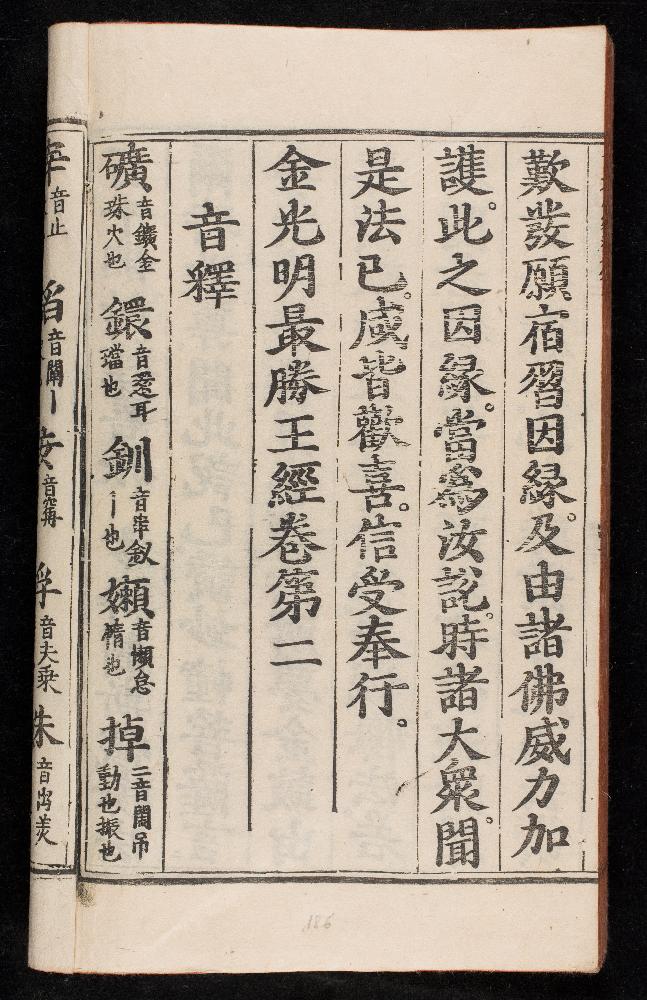 歎發願宿習因緣。及由諸佛威力加
護。此之因緣。當為汝說。時諸大衆。聞
是法已。咸皆歡喜。信受奉行。
金光明最勝王經卷第二
音釋
礦音鑛金珠火也 鐶音還耳璫也 釧音串釵丨也 嬾音懶怠惰也 掉二音閙吊動也振也
音止 音闡丨 音竊 孚音夫乘 音